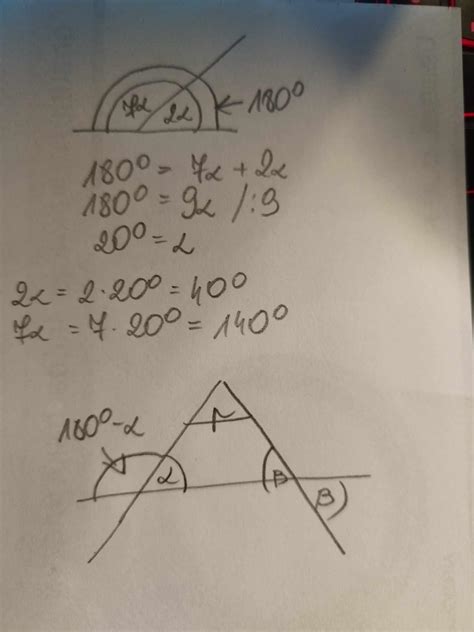 7α 2α 180°
180° = 7α + 2α
180° = 9α /:9
20° = α
2α = 2·20° = 40°
7α = 7·20° = 140°
180°-α
α β
β